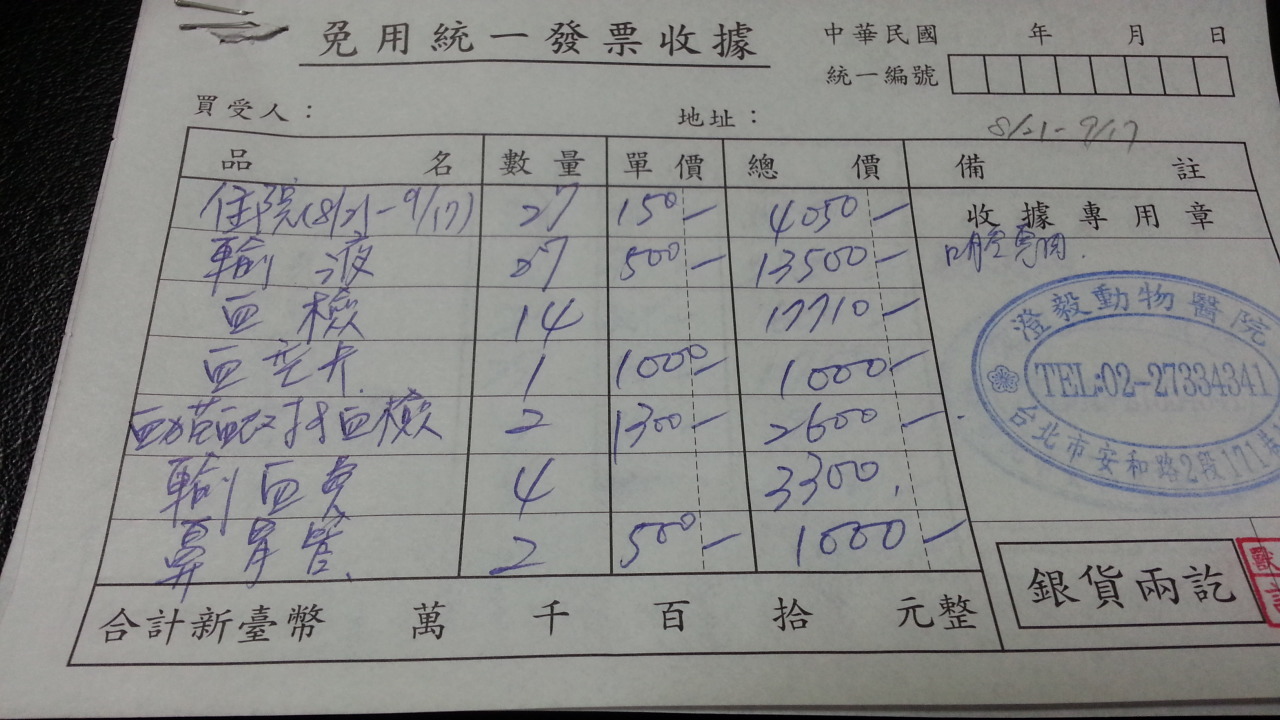 免用統一發票收據
中華民國 年 月 日
統一編號
買受人： 地址：
8/21-9/17
品名 數量 單價 總價 備註
住院(8/21-9/17) 27 150- 4050-
收據專用章
輸液 27 500- 13500-
口腔
血檢 14 17710-
1 1000- 1000-
血檢 2 1300- 2600-
輸血 4 3300.
鼻胃管 2 500- 1000-
澄毅動物醫院
TEL:02-27334341
台北市安和路2段171巷
合計新臺幣 萬 千 百 拾 元整
銀貨兩訖
獸